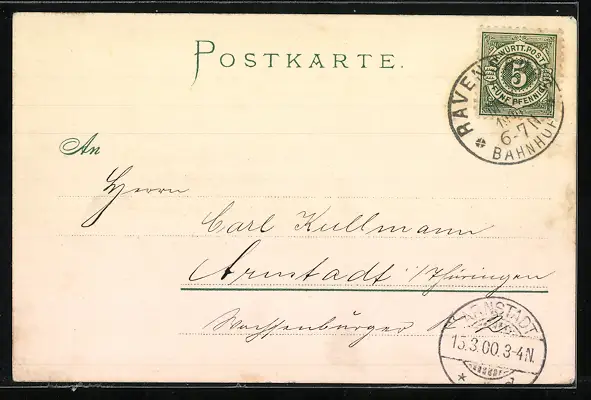 POSTKARTE.
K. WÜRTT. POST
5
FÜNF PFENNIG
RAVEN
6-7 N
BAHNHOF
An
Herrn
Carl Kullmann
Arnstadt i/Thüringen
Wachsenburger
ARNSTADT
15.3.00.3-4N.